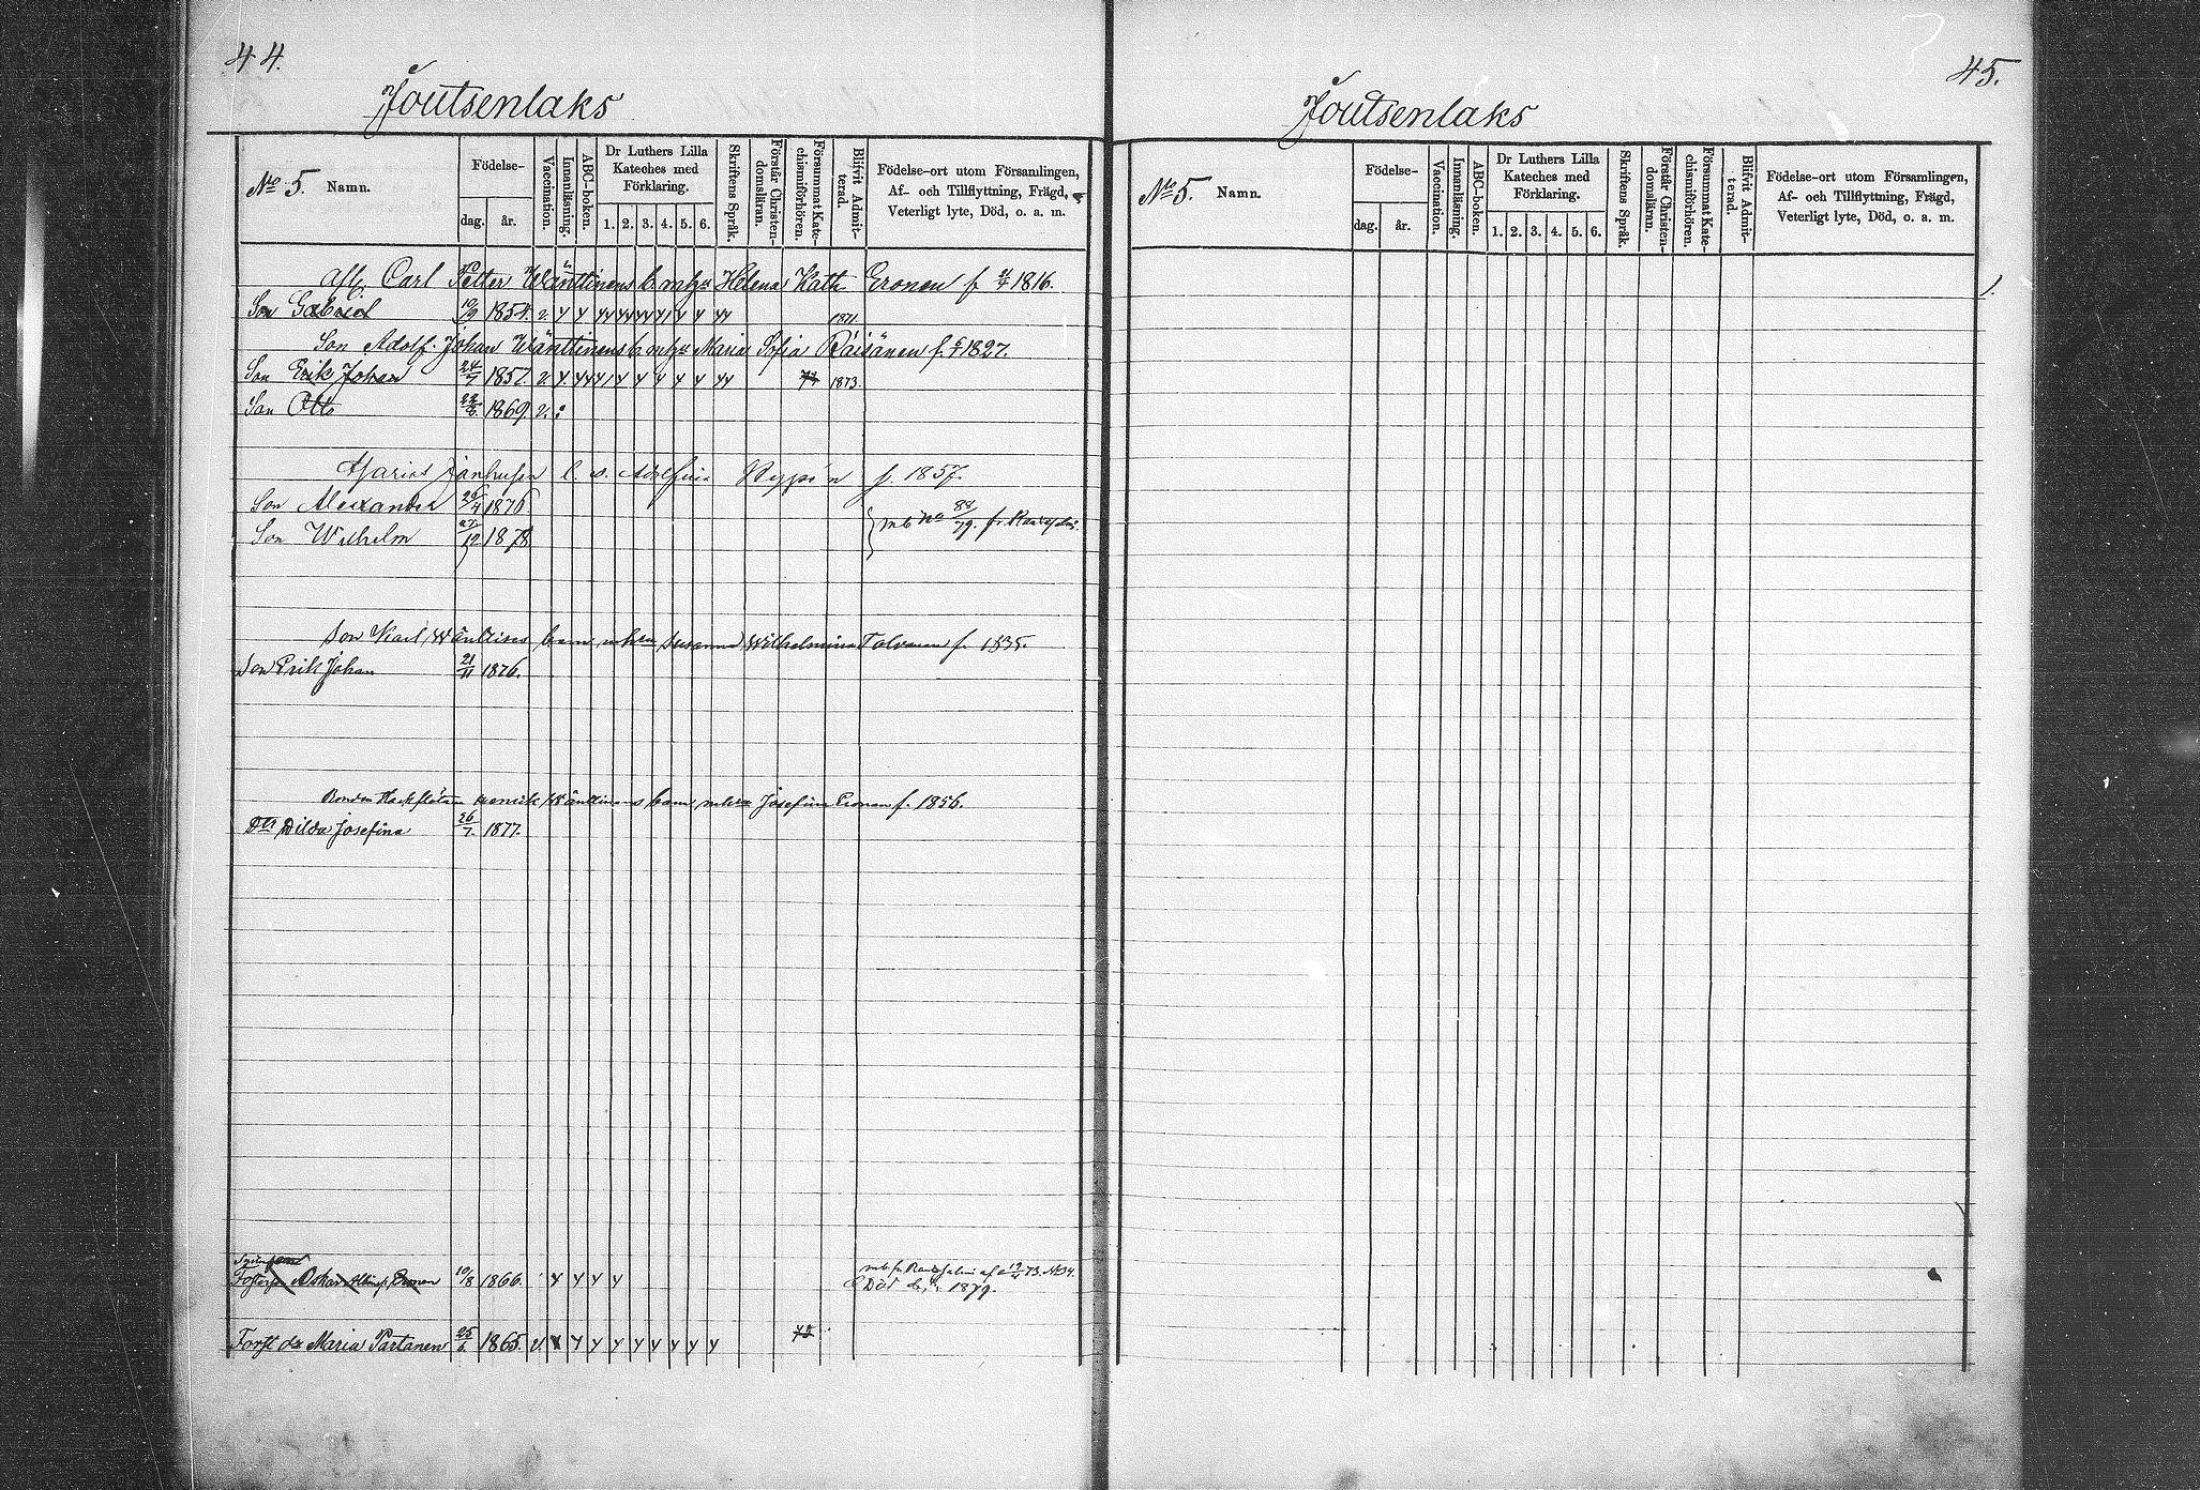 44.
Joutsenlaks
No 5. Namn.
Födelse-
dag. år.
Vaccination.
Innanläsning.
ABC-boken.
Dr Luthers Lilla
Kateches med
Förklaring.
1. 2. 3. 4. 5. 6.
Skriftens Språk.
Förstår Christen-
domsläran.
Försummat Kate-
chismiförhören.
Blifvit Admit-
terad.
Födelse-ort utom Församlingen,
Af- och Tillflyttning, Frägd,
Veterligt lyte, Död, o. a. m.
Afl. Carl Petter Wänttinens b. m hu Helena Kath Eronen f. 1816.
Son Gabriel 10/9 1854. v. 1871.
Son Adolf Johan Wänttinens b. m hu Maria Sofia Räisänen f. 1827.
Son Erik Johan 24/7 1857. v. 1873.
Son Otto 1869. v.
Janhunen b. Adolfina f. 1857.
Son Alexander 26/4 1876
Son Wilhelm 27/12 1878
mb No 88/79. fr.
Son Karl Wänttinens barn m hun Susanna Wilhelmina Tolvanen f. 1835.
Son Erik Johan 21/11 1876.
Bonden Henrik Wänttinens barn m hu Josefina Eronen f. 1856.
Dtr Hilda Josefina 26/7. 1877.
Oskar Eronen 10/8 1866.
mb fr. Rantasalmi af 73. No 94.
Död 1879.
Forst dr Maria Partanen 25/6. 1865. v.
45.
Joutsenlaks
No 5. Namn.
Födelse-
dag. år.
Vaccination.
Innanläsning.
ABC-boken.
Dr Luthers Lilla
Kateches med
Förklaring.
1. 2. 3. 4. 5. 6.
Skriftens Språk.
Förstår Christen-
domsläran.
Försummat Kate-
chismiförhören.
Blifvit Admit-
terad.
Födelse-ort utom Församlingen,
Af- och Tillflyttning, Frägd,
Veterligt lyte, Död, o. a. m.